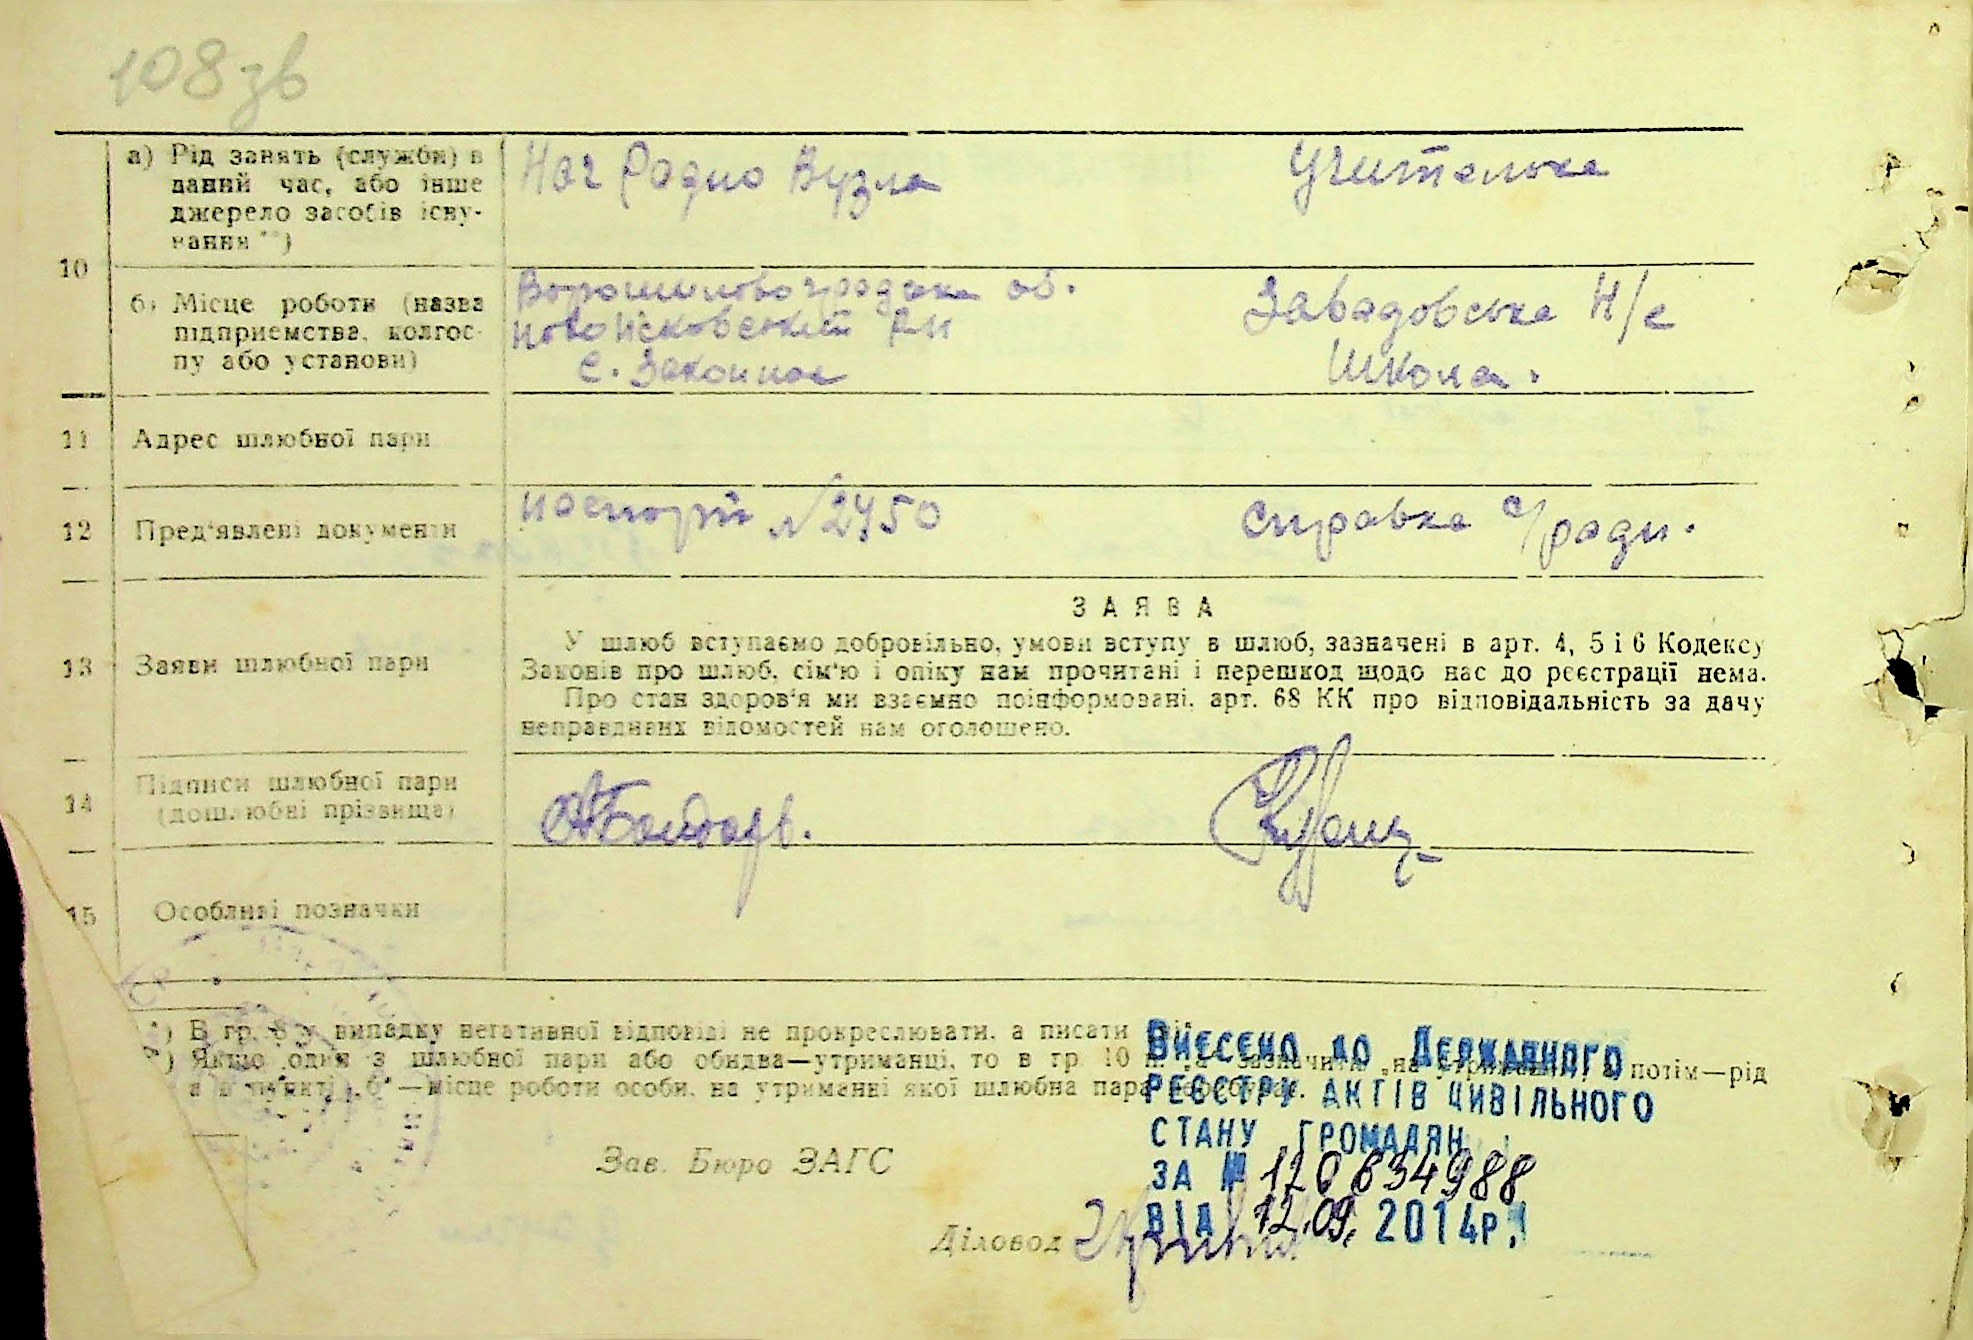 108 зв
а) Рід занять (служби) в
даний час, або інше
джерело засобів існу-
вання **)
Нач Радио Вузла
Учителька
10
б) Місце роботи (назва
підприємства, колгос-
пу або установи)
Ворошиловоградська об.
С. Законное
Завадовська Н/с
Школа.
11
Адрес шлюбної пари
12
Пред'явлені документи
паспорт №2450
справка с/ради.
13
Заяви шлюбної пари
ЗАЯВА
У шлюб вступаємо добровільно, умови вступу в шлюб, зазначені в арт. 4, 5 і 6 Кодексу
Законів про шлюб, сім'ю і опіку нам прочитані і перешкод щодо нас до реєстрації нема.
Про стан здоров'я ми взаємно поінформовані, арт. 68 КК про відповідальність за дачу
неправдивих відомостей нам оголошено.
14
Підписи шлюбної пари
(дошлюбні прізвища)
15
Особливі позначки
*) В гр. 8 у випадку негативної відповіді не прокреслювати, а писати
) Якщо один з шлюбної пари або обидва—утриманці, то в гр. 10 п. „а" зазначити „на потім—рід
а в пункті „б"—місце роботи особи, на утриманні якої шлюбна пара
Внесено до Державного
реєстру актів цивільного
стану громадян
за № 120634988
від 12.09. 2014р.
Зав. Бюро ЗАГС
Діловод